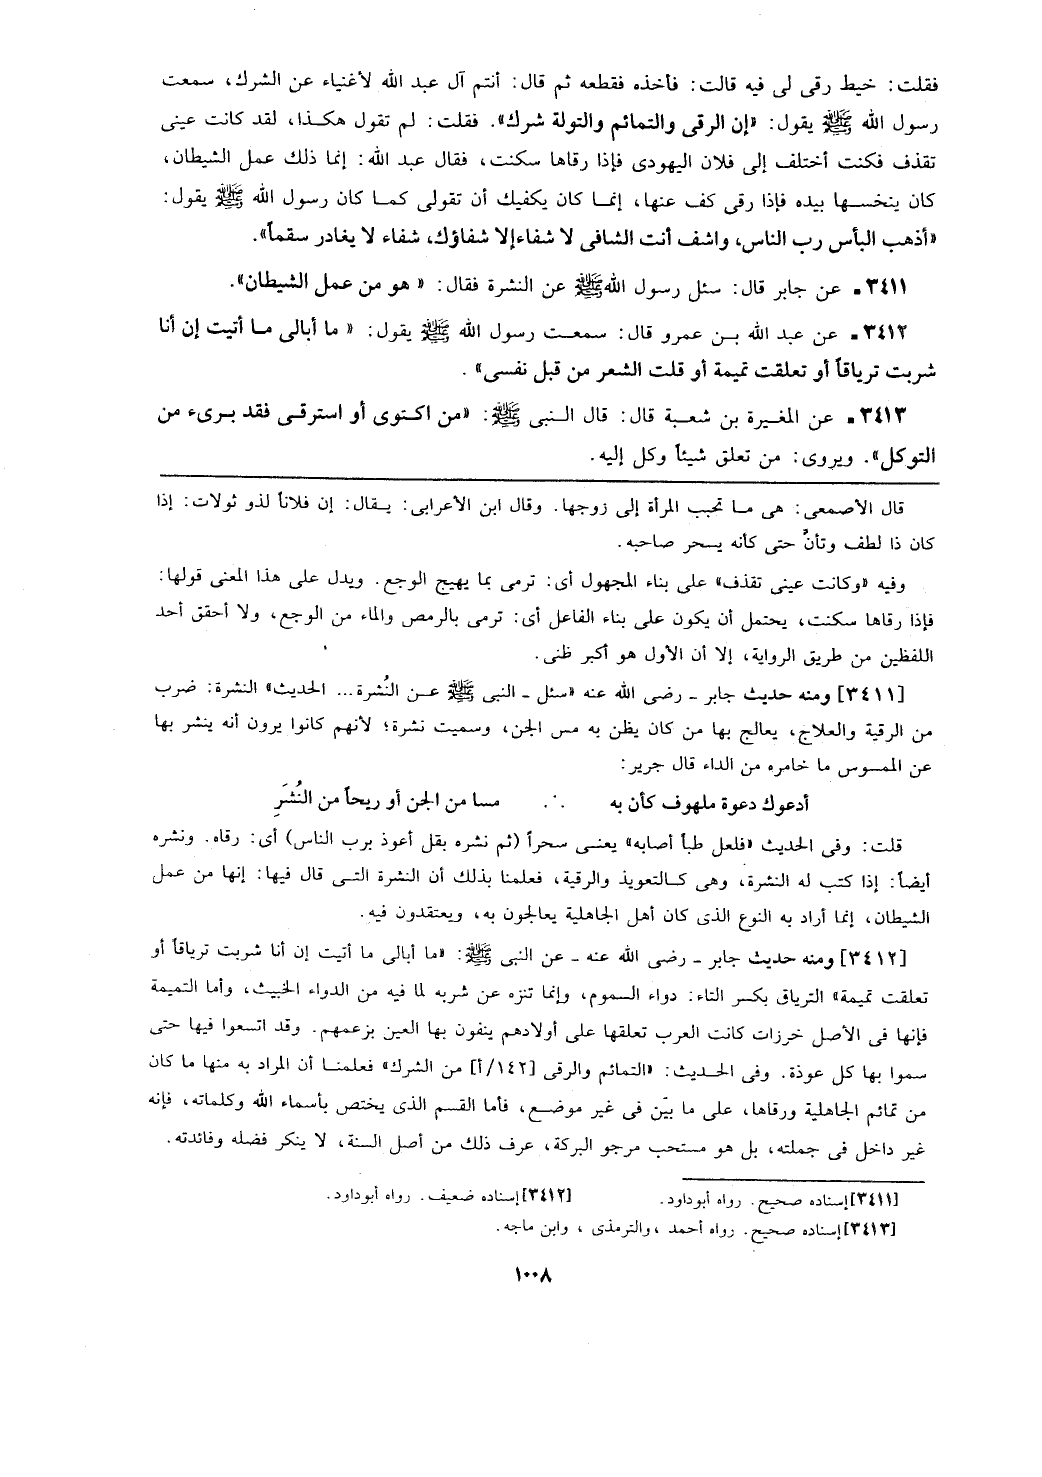 فقلت: خيط رقى لى فيه قالت: فأخذه فقطعه ثم قال: أنتم آل عبد الله لأغنياء عن الشرك، سمعت
رسول الله ﷺ يقول: «إن الرقى والتمائم والتولة شرك». فقلت: لم تقول هكذا، لقد كانت عينى
تقذف فكنت أختلف إلى فلان اليهودى فإذا رقاها سكنت، فقال عبد الله: إنما ذلك عمل الشيطان،
كان ينخسها بيده فإذا رقى كف عنها، إنما كان يكفيك أن تقولى كما كان رسول الله ﷺ يقول:
«أذهب البأس رب الناس، واشف أنت الشافى لا شفاء إلا شفاؤك، شفاء لا يغادر سقماً».
٣٤١١ـ عن جابر قال: سئل رسول الله ﷺ عن النشرة فقال: « هو من عمل الشيطان».
٣٤١٢ـ عن عبد الله بن عمرو قال: سمعت رسول الله ﷺ يقول: « ما أبالى ما أتيت إن أنا
شربت ترياقاً أو تعلقت تميمة أو قلت الشعر من قبل نفسى» .
٣٤١٣ـ عن المغيرة بن شعبة قال: قال النبى ﷺ: «من اكتوى أو استرقى فقد برىء من
التوكل». ويروى: من تعلق شيئاً وكل إليه.
قال الأصمعى: هى ما تحبب المرأة إلى زوجها. وقال ابن الأعرابى: يقال: إن فلاناً لذو ثولات: إذا
كان ذا لطف وتأنٍّ حتى كأنه يسحر صاحبه.
وفيه «وكانت عينى تقذف» على بناء المجهول أى: ترمى بما يهيج الوجع. ويدل على هذا المعنى قولها:
فإذا رقاها سكنت، يحتمل أن يكون على بناء الفاعل أى: ترمى بالرمص والماء من الوجع، ولا أحقق أحد
اللفظين من طريق الرواية، إلا أن الأول هو أكبر ظنى.
[٣٤١١] ومنه حديث جابر ـ رضى الله عنه «سئل ـ النبى ﷺ عن النُشرة... الحديث» النشرة: ضرب
من الرقية والعلاج، يعالج بها من كان يظن به مس الجن، وسميت نشرة؛ لأنهم كانوا يرون أنه ينشر بها
عن الممسوس ما خامره من الداء قال جرير:
أدعوك دعوة ملهوف كأن به .·. مسا من الجن أو ريحاً من النُشَرِ
قلت: وفى الحديث «فلعل طبأ أصابه» يعنى سحراً (ثم نشره بقل أعوذ برب الناس) أى: رقاه. ونشره
أيضاً: إذا كتب له النشرة، وهى كالتعويذ والرقية، فعلمنا بذلك أن النشرة التى قال فيها: إنها من عمل
الشيطان، إنما أراد به النوع الذى كان أهل الجاهلية يعالجون به، ويعتقدون فيه.
[٣٤١٢] ومنه حديث جابر ـ رضى الله عنه ـ عن النبى ﷺ: «ما أبالى ما أتيت إن أنا شربت ترياقاً أو
تعلقت تميمة» الترياق بكسر التاء: دواء السموم، وإنما تنزه عن شربه لما فيه من الدواء الخبيث، وأما التميمة
فإنها فى الأصل خرزات كانت العرب تعلقها على أولادهم ينفون بها العين بزعمهم. وقد اتسعوا فيها حتى
سموا بها كل عوذة. وفى الحديث: «التمائم والرقى [١٤٢/أ] من الشرك» فعلمنا أن المراد به منها ما كان
من تمائم الجاهلية ورقاها، على ما بيّن فى غير موضع، فأما القسم الذى يختص بأسماء الله وكلماته، فإنه
غير داخل فى جملته، بل هو مستحب مرجو البركة، عرف ذلك من أصل السنة، لا ينكر فضله وفائدته.
[٣٤١١] إسناده صحيح. رواه أبوداود. [٣٤١٢] إسناده ضعيف. رواه أبوداود.
[٣٤١٣] إسناده صحيح. رواه أحمد ،والترمذى ، وابن ماجه.
١٠٠٨